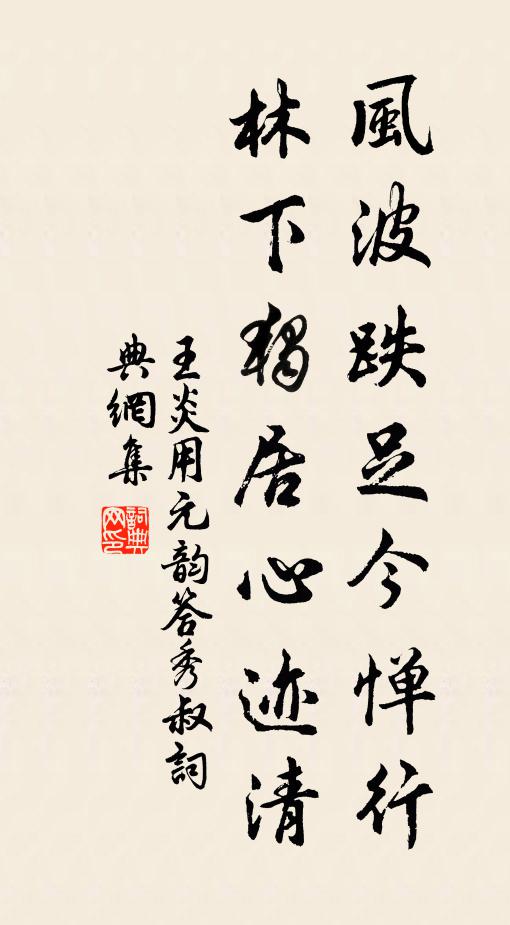 風波跌足今惮行
林下獨居心迹清
王炎用元韵答秀叔詞
典網集
詞典网印